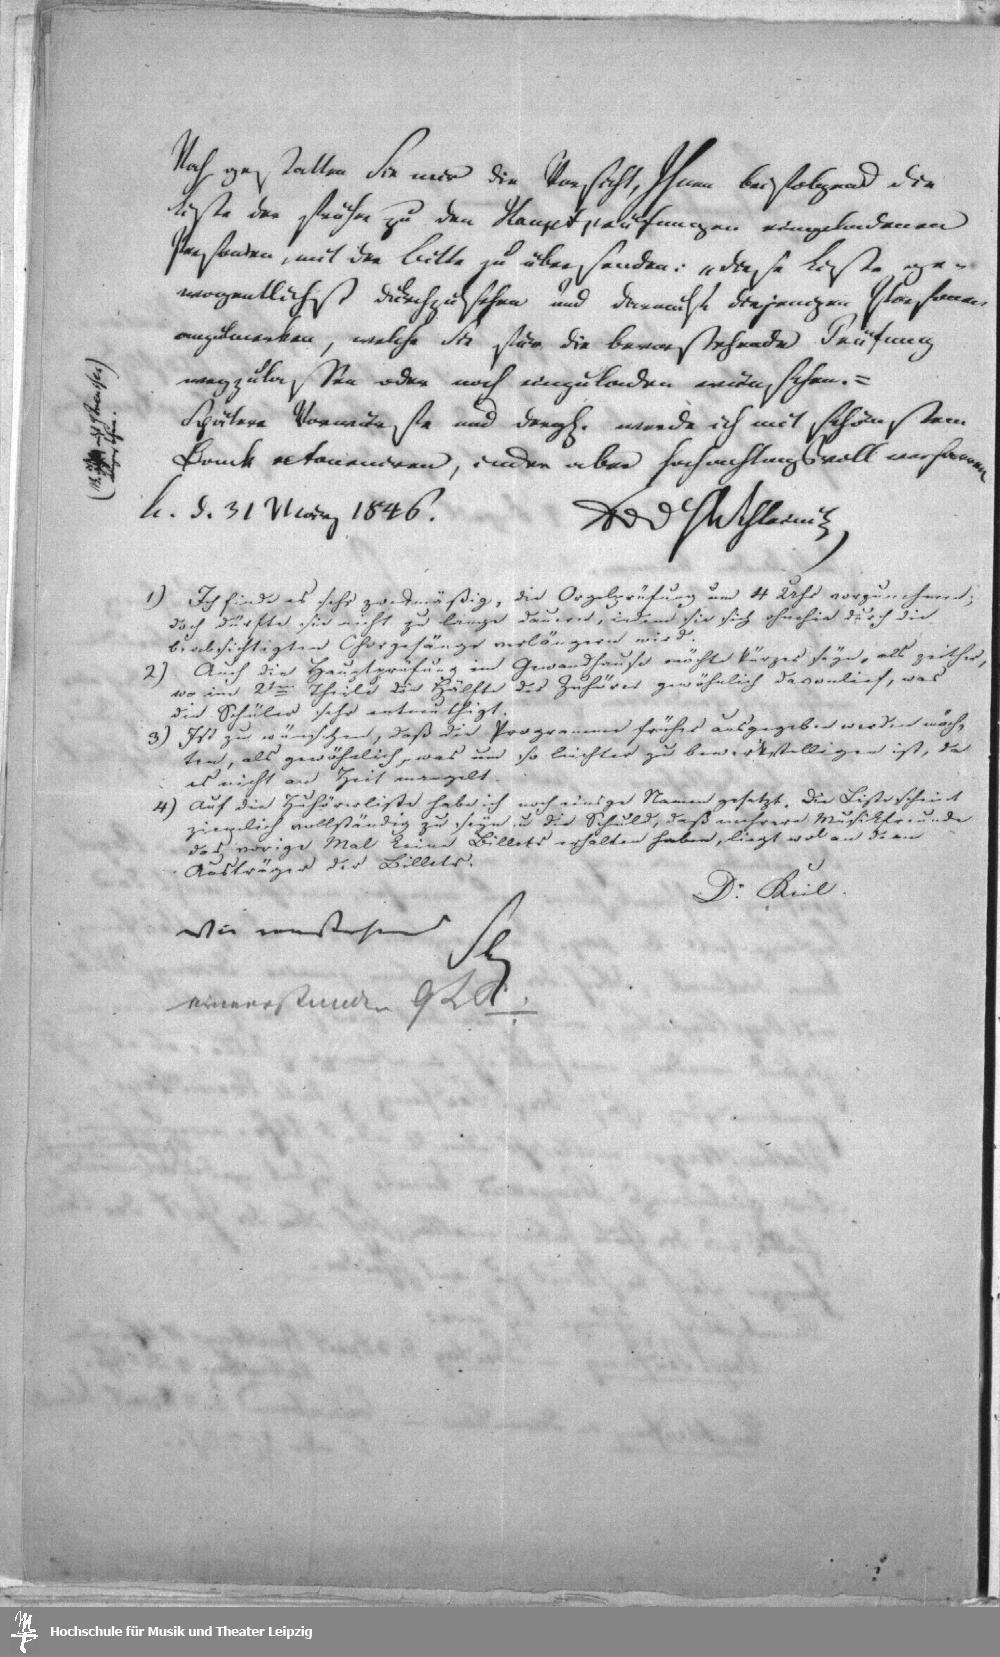 Noch gestatten Sie mir die Vorsicht, Ihnen beifolgend die
Liste der früher zu den Hauptprüfungen eingeladenen
Personen, mit der Bitte zu übersenden: diese Liste ge-
wogentlichst durchzusehen und darauf diejenigen Personen
anzumerken, welche Sie für die bevorstehende Prüfung
wegzulassen oder noch einzuladen wünschen.=
Spätere und dergl. werde ich mit schönstem
Dank, indem aber hochachtungsvoll
L. d. 31 März 1846. Schleinitz
1) Ich finde es sehr zweckmäßig, die Orgelprüfung um 4 Uhr vorzunehmen;
doch dürfte sie nicht zu lange dauern, indem sie sich ohnehin durch die
beabsichtigten Chorgesänge verlängern wird.
2) Auch die Hauptprüfung im Gewandhause möchte kürzer seyn, als zeither,
wo im 2ten Theile die Hälfte der Zuhörer gewöhnlich davonlief, was
die Schüler sehr entmuthigt.
3) Ist zu wünschen, daß die Programme früher ausgegeben werden möch-
ten, als gewöhnlich, was um so leichter zu bewerkstelligen ist, da
es nicht an Zeit mangelt.
4) Auf die Zuhörerliste habe ich noch einige Namen gesetzt. Die Liste scheint
ziemlich vollständig zu seyn u. die Schuld, daß mehrere Musikfreunde
das vorige Mal keine Billets erhalten haben, liegt wol an dem
Austräger der Billets.
Dr. Keil.
Wie vorstehend
einverstanden
Hochschule für Musik und Theater Leipzig